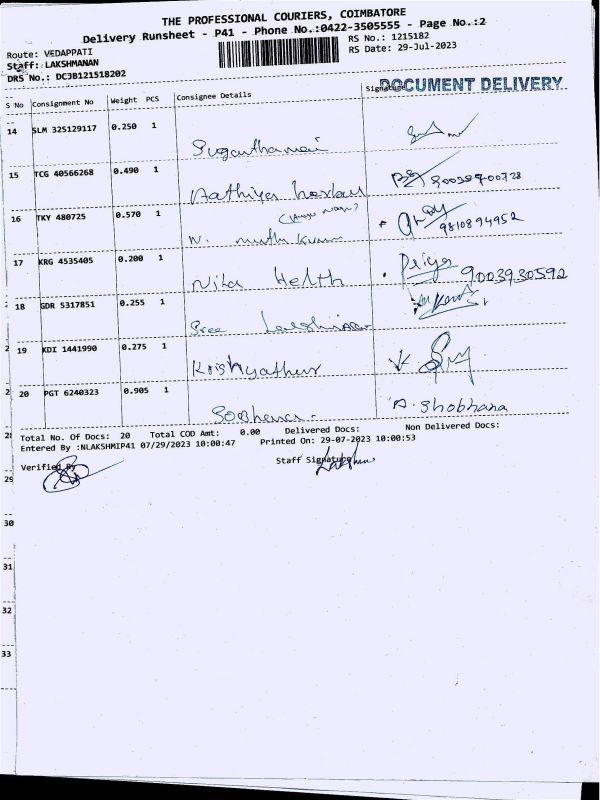 THE PROFESSIONAL COURIERS, COIMBATORE
Delivery Runsheet - P41 - Phone No.:0422-3505555 - Page No.:2
Route: VEDAPPATI
RS No.: 1215182
Staff: LAKSHMANAN
RS Date: 29-Jul-2023
DRS No.: DC3B121518202
DOCUMENT DELIVERY
S No Consignment No Weight PCS Consignee Details Signature
14 SLM 325129117 0.250 1
Suganthamani
15 TCG 40566268 0.490 1
Aathiya
16 TKY 480725 0.570 1
N. muthu kumar
9810894952
17 KRG 4535405 0.200 1
Nila Helth
Priya 9003930592
18 GDR 5317851 0.255 1
Sree
19 KDI 1441990 0.275 1
20 PGT 6240323 0.905 1
A. Shobhana
Total No. Of Docs: 20 Total COD Amt: 0.00 Delivered Docs: Non Delivered Docs:
Entered By :NLAKSHMIP41 07/29/2023 10:00:47 Printed On: 29-07-2023 10:00:53
Verified By
Staff Signature
29
30
31
32
33